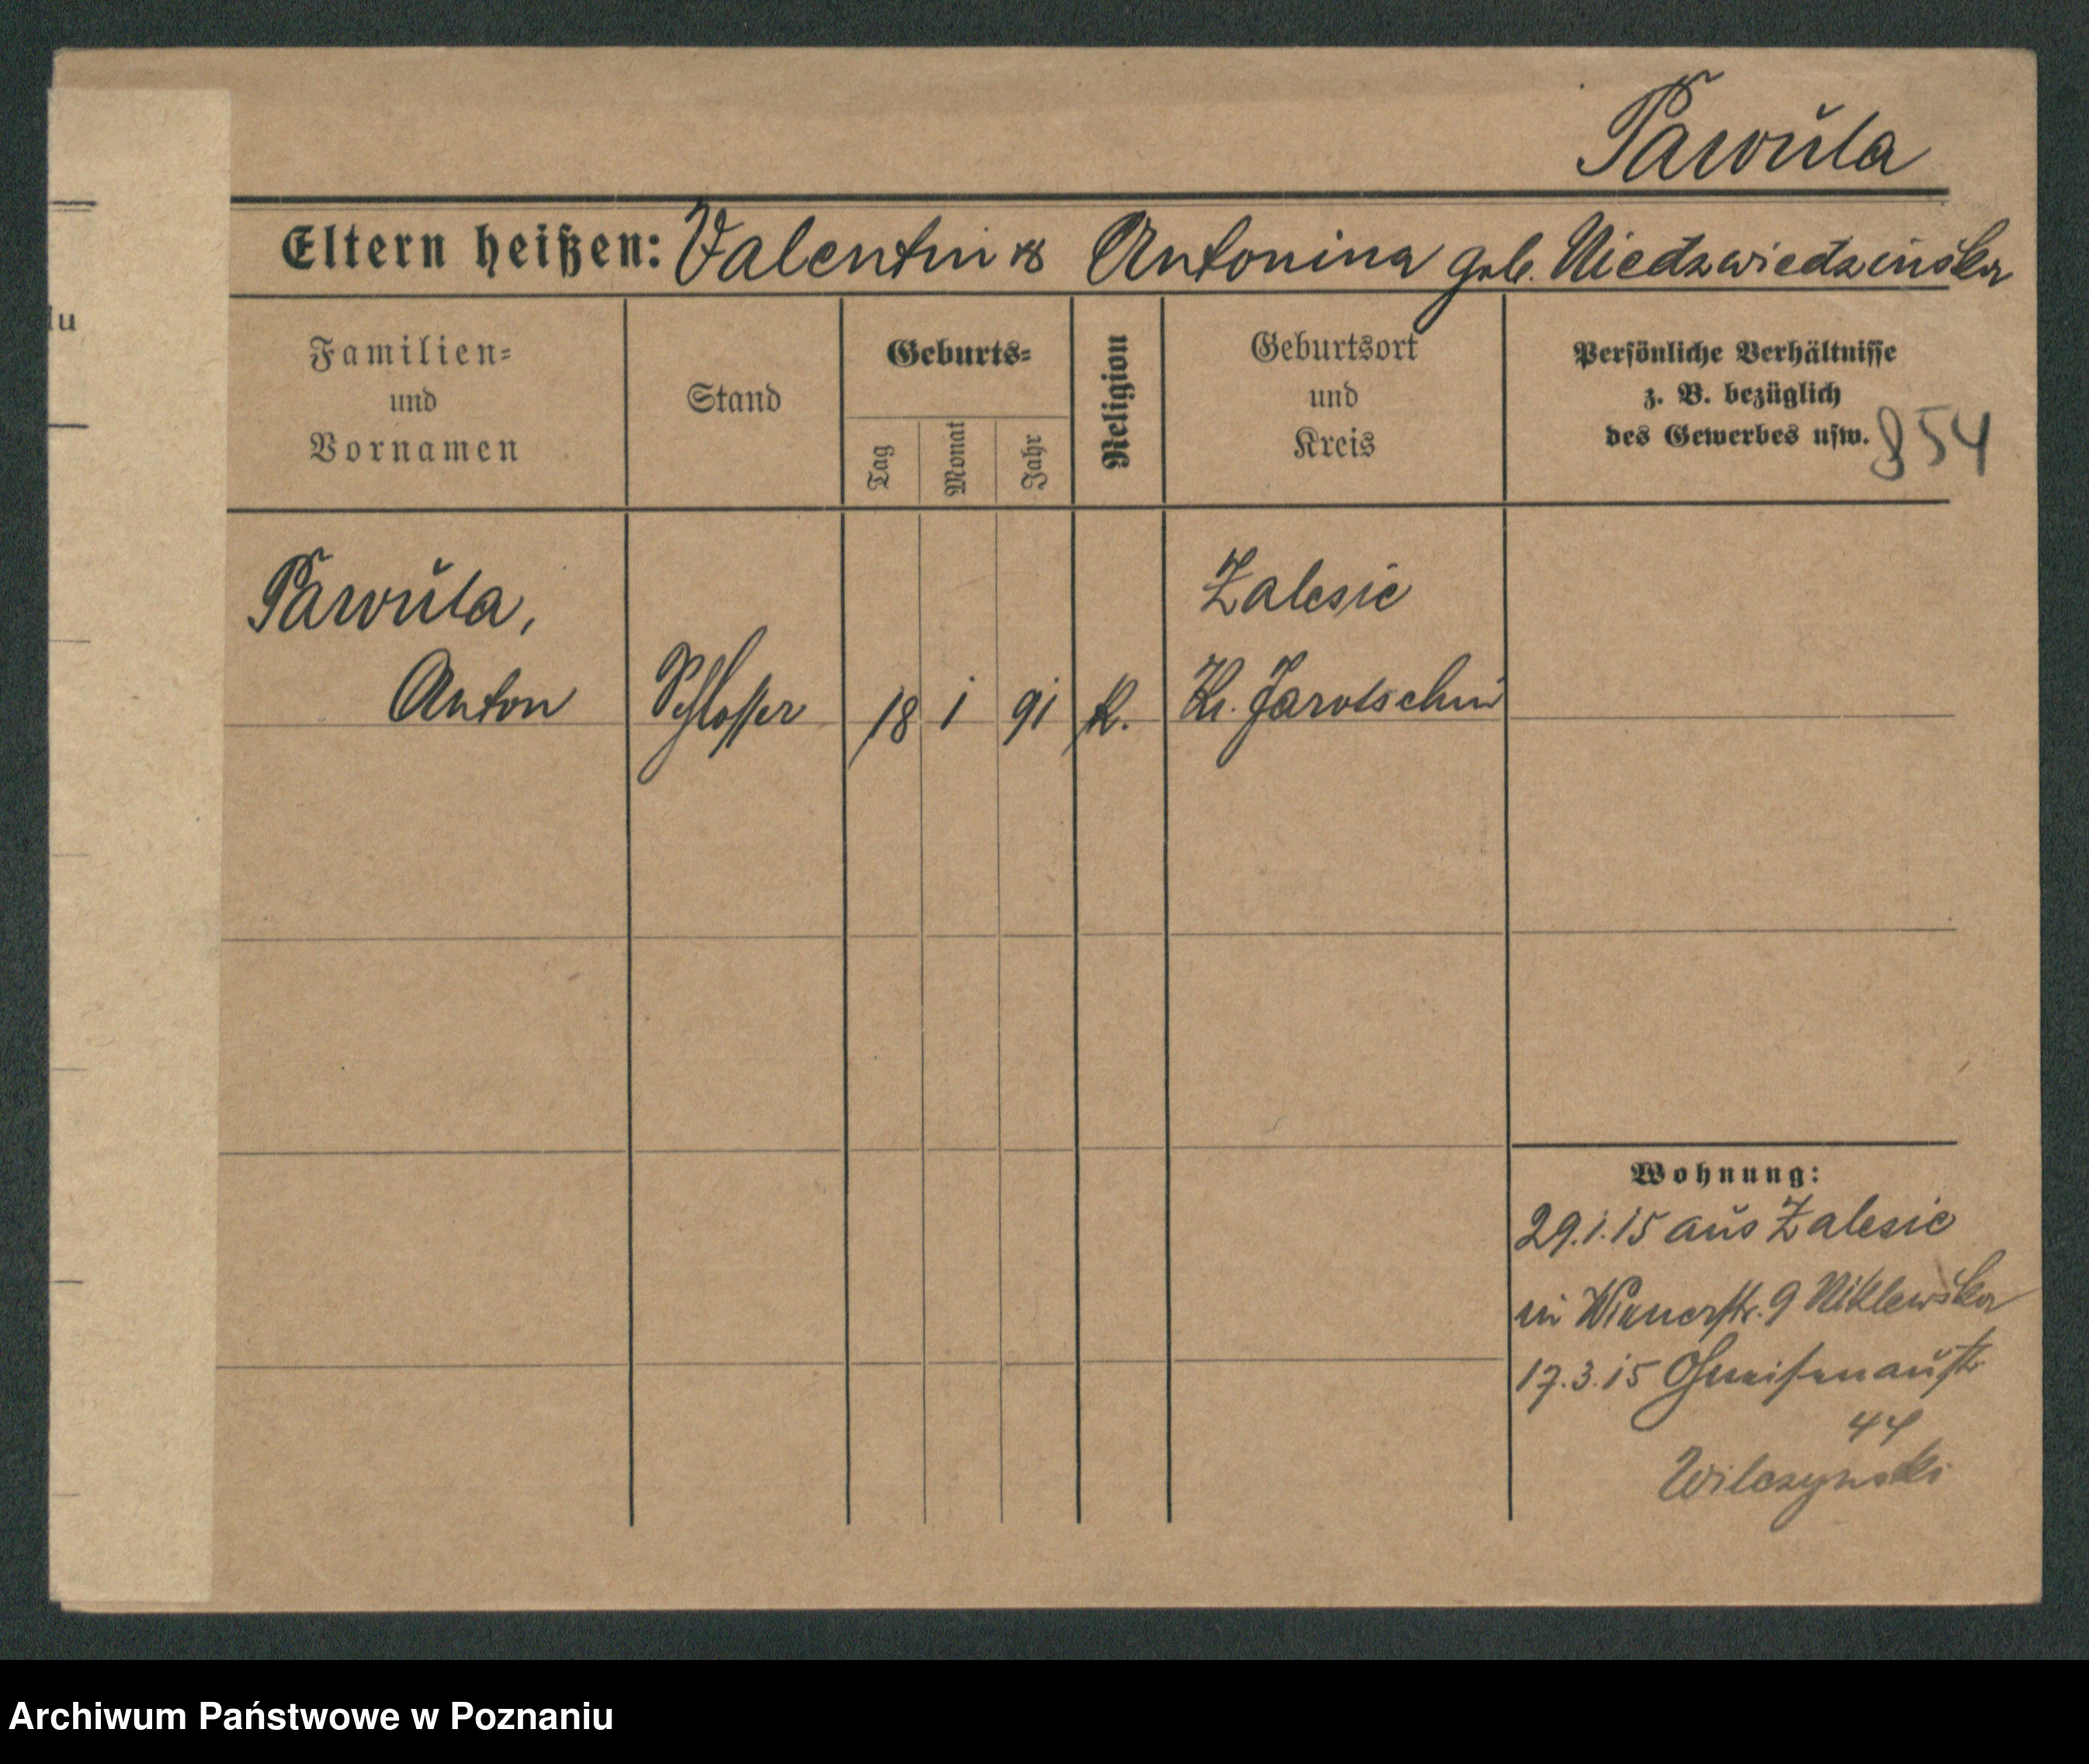 Pawŭla
Eltern heißen: Valentin & Antonina geb. Niedzwiedzinska
Familien=
und
Vornamen
Stand
Geburts=
Tag
Monat
Jahr
Religion
Geburtsort
und
Kreis
Persönliche Verhältnisse
z. B. bezüglich
des Gewerbes usw.
854
Pawŭla,
Anton
Schlosser
18
1
91
K.
Zalesie
Kr. Jarotschin
Wohnung:
29.1.15 aŭs Zalesie
in Wienerstr. 9 Niklewska
17.3.15 Gneisenaŭstr.
44
Wilczynski
lu
Archiwum Państwowe w Poznaniu